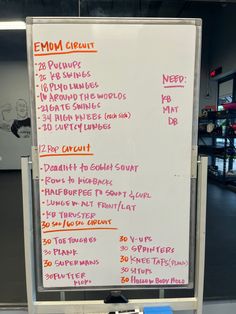 EMOM CIRCUIT
-28 PUSHUPS
-26 KB SWINGS
-18 PLYO LUNGES
-16 AROUND THE WORLDS
-21 GATE SWINGS
-34 HIGH KNEES (each side)
-20 CURTSY LUNGES
NEED:
KB
MAT
DB
12 Rep CIRCUIT
-DEADLIFT to GOBLET SQUAT
-ROWS to KICKBACKS
-HALF BURPEE TO SQUAT & CURL
-LUNGE W/ ALT FRONT/LAT
-KB THRUSTER
30 SEC/60 SEC CIRCUIT
30 TOE TOUCHES
30 PLANK
30 SUPERMANS
30 FLUTTER
KICKS
30 V-UPS
30 SPRINTERS
30 KNEE TAPS (PLANK)
30 SITUPS
30 HOLLOW BODY HOLD